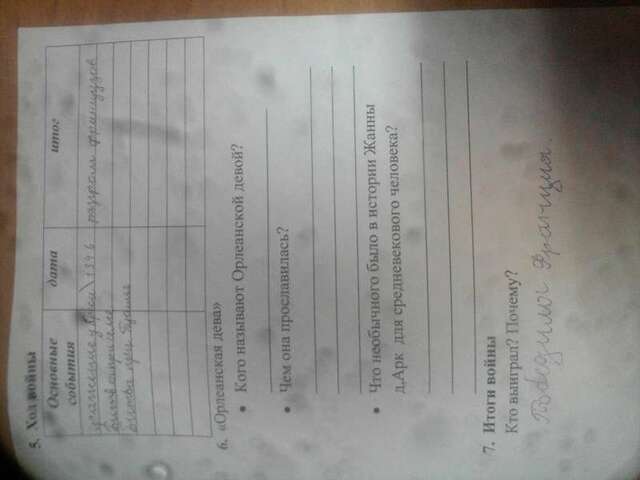 5. Ход войны
Основные события дата итог
сражение у Креси 1346 разгром французов
битва при
6. «Орлеанская дева»
• Кого называют Орлеанской девой?
• Чем она прославилась?
• Что необычного было в истории Жанны
д.Арк для средневекового человека?
7. Итоги войны
Кто выиграл? Почему?
Победила Франция.